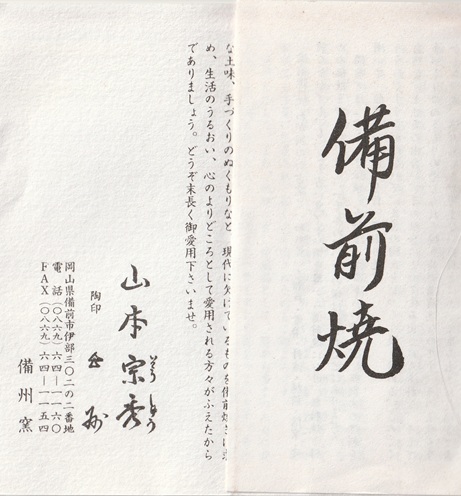 備前焼
な土味、手づくりのぬくもりなど 現代に欠けているものを備前焼きに求
め、生活のうるおい、心のよりどころとして愛用される方々がふえたから
でありましょう。どうぞ末長く御愛用下さいませ。
山本宗秀
陶印
岡山県備前市伊部三〇二の二番地
電話(〇八六九)六四―一一六〇
FAX(〇八六九)六四―一一五四
備州窯